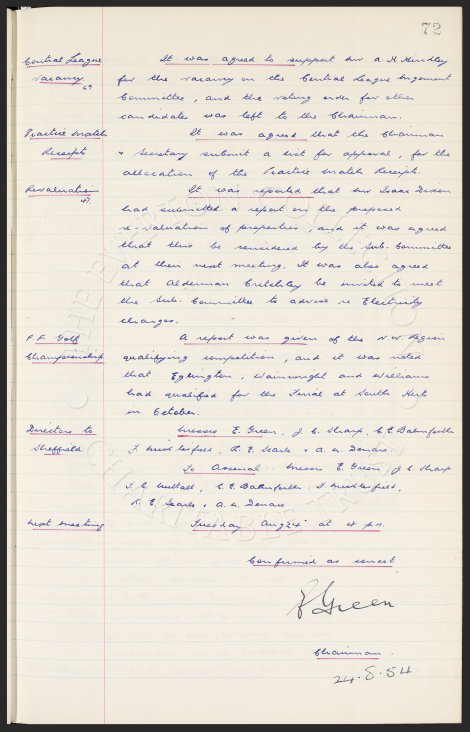 72
Central League It was agreed to support Mr A H Hindley
Vacancy for the vacancy on the Central League Management
67
Committee, and the voting order for other
candidates was left to the Chairman.
Practice Match It was agreed that the Chairman
Receipts & Secretary submit a list for approval, for the
allocation of the Practice Match Receipts.
Revaluation It was reported that Mr Isaac Dixon
had submitted a report on the proposed
re-valuation of properties, and it was agreed
that this be considered by the Sub. Committee
at their next meeting. It was also agreed
that Alderman Critchley be invited to meet
the Sub. Committee to advise re Electricity
charges.
P.F. Golf A report was given of the N.W. Region
Championship qualifying competition, and it was noted
that Eglington, Wainwright and Williams
had qualified for the Final at South Herts
in October.
Directors to Messrs E. Green, J. C. Sharp, C. E. Balmforth
Sheffield. T. Nuttall, R. E. Searle & A. W. Denaro.
To Arsenal: Messrs E. Green, J. C. Sharp
T. C. Nuttall, C. E. Balmforth.
R. E. Searle & A. W. Denaro.
Next Meeting Tuesday Aug 24th at 4 pm
Confirmed as correct
E Green
Chairman.
24.8.54